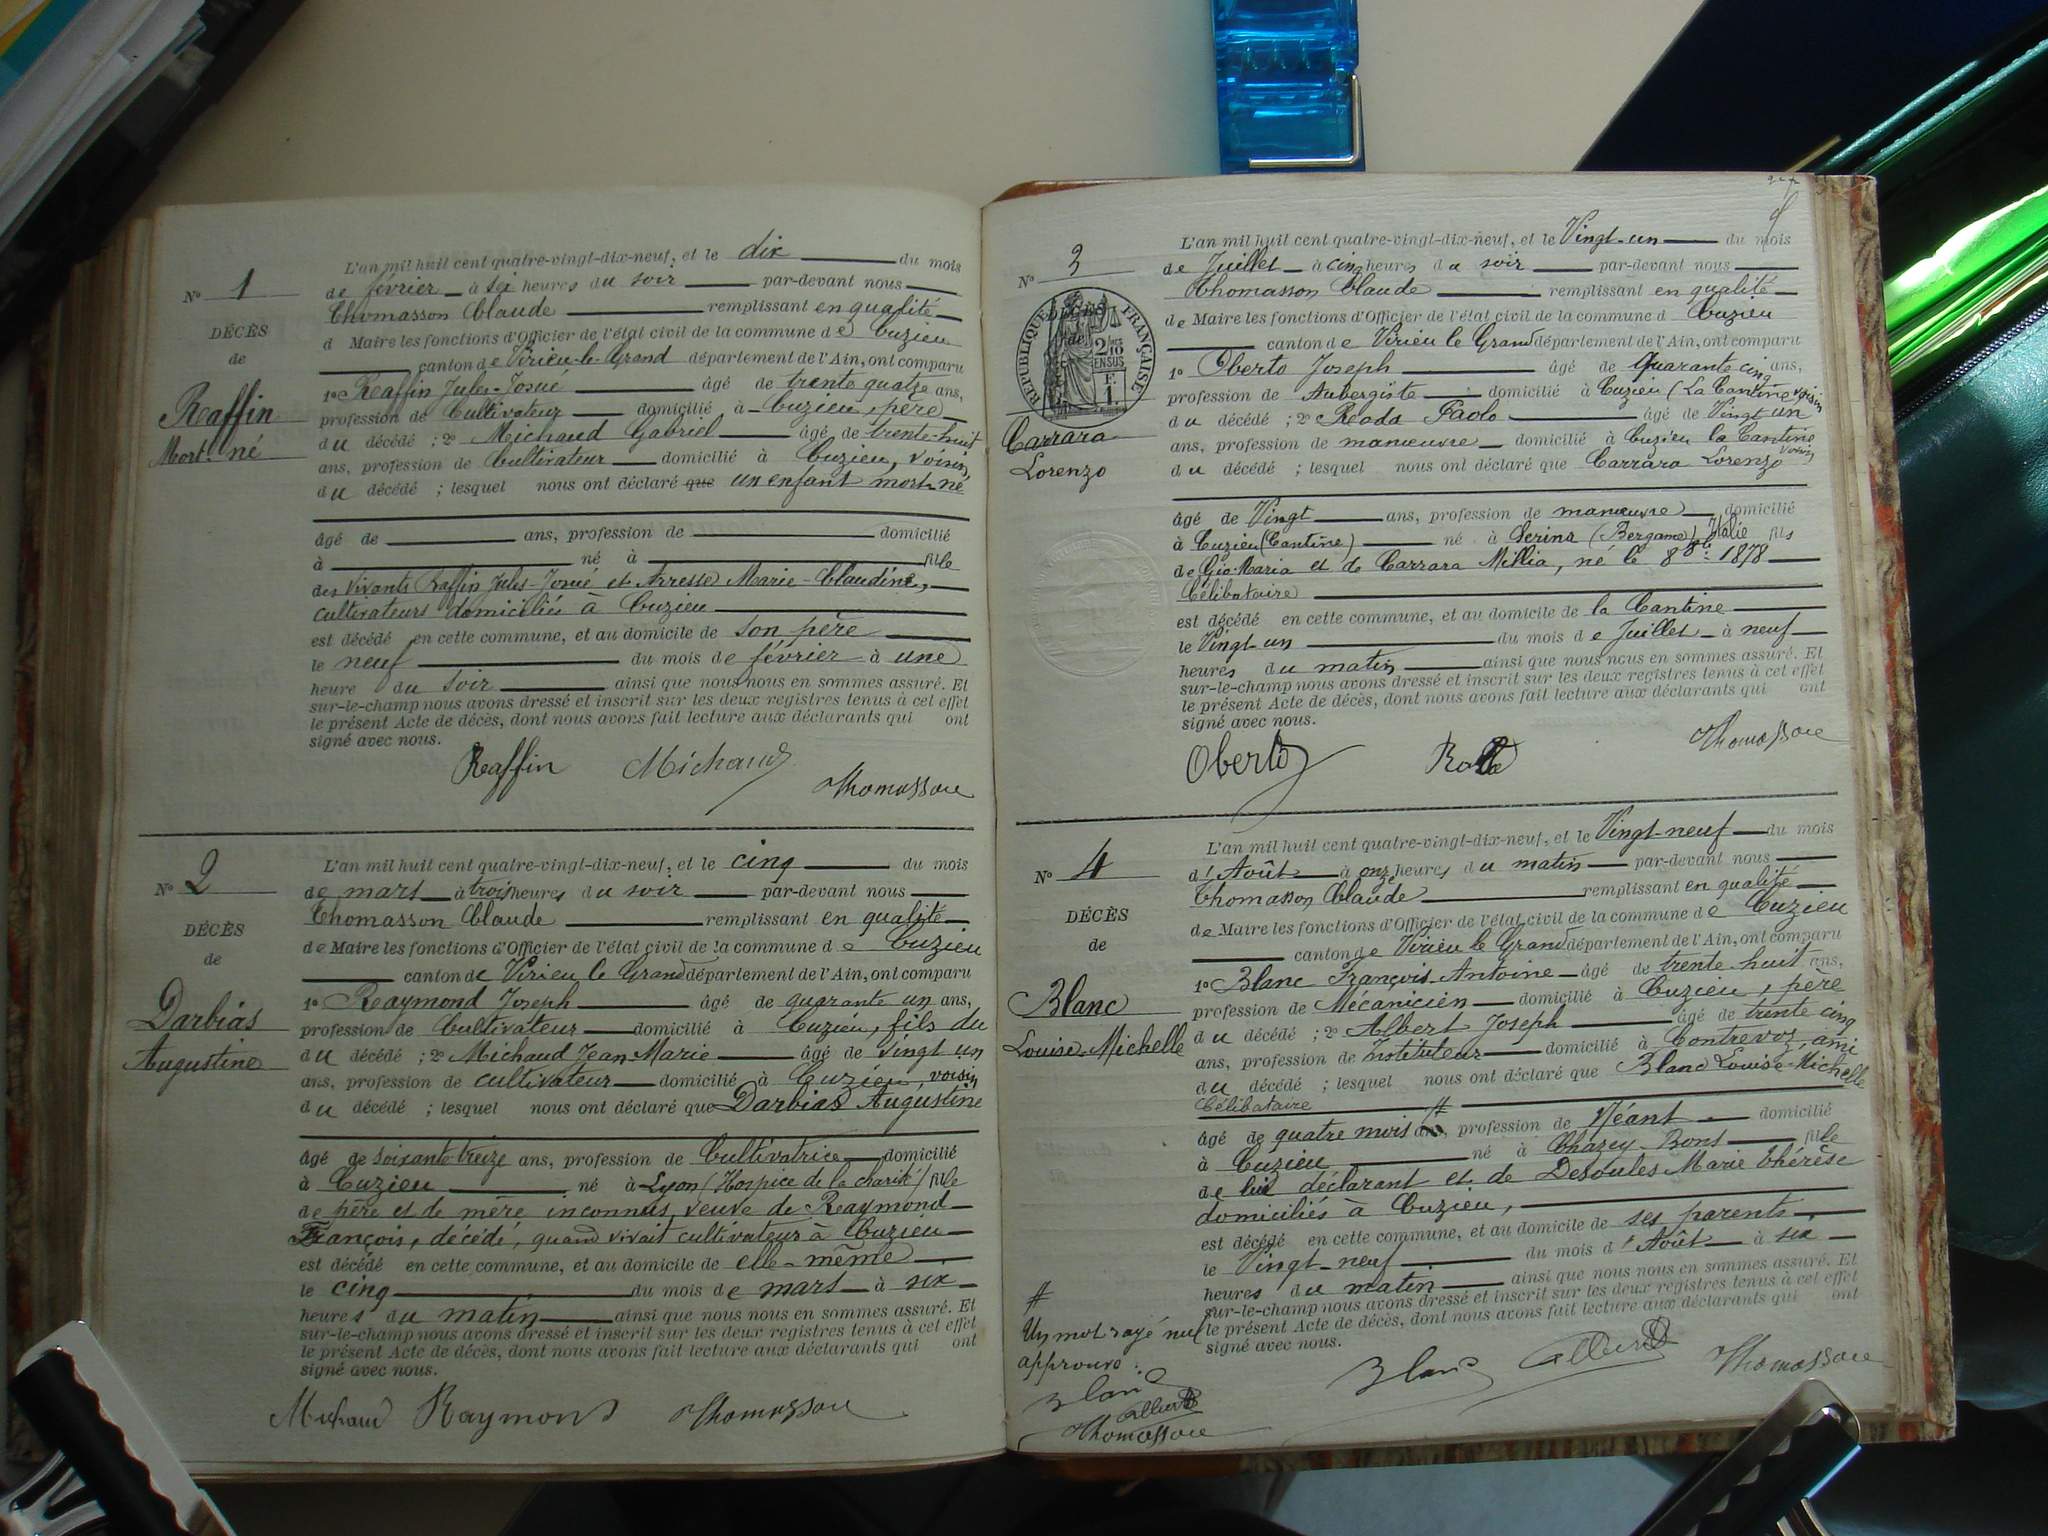 N° 1
DÉCÈS
de
Raffin
Mort-né
L'an mil huit cent quatre-vingt-dix-neuf, et le dix du mois
de février à six heures du soir par-devant nous
Thomasson Claude remplissant en qualité
d Maire les fonctions d'Officier de l'état civil de la commune de Cuzieu
canton de Virieu-le-Grand département de l'Ain, ont comparu
1° Raffin Jules-Josué âgé de trente quatre ans,
profession de Cultivateur domicilié à Cuzieu, père
du décédé ; 2° Michaud Gabriel âgé de trente-huit
ans, profession de Cultivateur domicilié à Cuzieu, voisin,
du décédé ; lesquel nous ont déclaré que un enfant mort-né
âgé de ans, profession de domicilié
à né à fille
des vivants Raffin Jules-Josué et Marie-Claudine,
cultivateurs domiciliés à Cuzieu
est décédé en cette commune, et au domicile de son père
le neuf du mois de février à une
heure du soir ainsi que nous nous en sommes assuré. Et
sur-le-champ nous avons dressé et inscrit sur les deux registres tenus à cet effet
le présent Acte de décès, dont nous avons fait lecture aux déclarants qui ont
signé avec nous.
Raffin Michaud Thomasson
N° 2
DÉCÈS
de
Darbias
Augustine
L'an mil huit cent quatre-vingt-dix-neuf, et le cinq du mois
de mars à trois heures du soir par-devant nous
Thomasson Claude remplissant en qualité
de Maire les fonctions d'Officier de l'état civil de la commune de Cuzieu
canton de Virieu le Grand département de l'Ain, ont comparu
1° Raymond Joseph âgé de quarante un ans,
profession de Cultivateur domicilié à Cuzieu, fils du
du décédé ; 2° Michaud Jean-Marie âgé de vingt un
ans, profession de cultivateur domicilié à Cuzieu, voisin
du décédé ; lesquel nous ont déclaré que Darbias Augustine
âgé de soixante treize ans, profession de Cultivatrice domicilié
à Cuzieu né à Lyon (Hospice de la charité) fille
de père et de mère inconnus, veuve de Raymond
François, décédé, quand vivait cultivateur à Cuzieu
est décédé en cette commune, et au domicile de elle-même
le cinq du mois de mars à six
heures du matin ainsi que nous nous en sommes assuré. Et
sur-le-champ nous avons dressé et inscrit sur les deux registres tenus à cet effet
le présent Acte de décès, dont nous avons fait lecture aux déclarants qui ont
signé avec nous.
Michaud Raymond Thomasson
N° 3
DÉCÈS
de
RÉPUBLIQUE FRANÇAISE
2/10 EN SUS
F. 1.
Carrara
Lorenzo
L'an mil huit cent quatre-vingt-dix-neuf, et le Vingt-un du mois
de Juillet à cinq heures du soir par-devant nous
Thomasson Claude remplissant en qualité
de Maire les fonctions d'Officier de l'état civil de la commune d Cuzieu
canton de Virieu le Grand département de l'Ain, ont comparu
1° Oberto Joseph âgé de quarante cinq ans,
profession de Aubergiste domicilié à Cuzieu (La Cantine voisin
du décédé ; 2° Roada Paolo âgé de Vingt un
ans, profession de manœuvre domicilié à Cuzieu la Cantine
voisin
du décédé ; lesquel nous ont déclaré que Carrara Lorenzo
âgé de Vingt ans, profession de manœuvre domicilié
à Cuzieu (Cantine) né à Serina (Bergame) Italie fils
de Gio-Maria et de Carrara Millia, né le 8 8bre 1878
Célibataire
est décédé en cette commune, et au domicile de la Cantine
le Vingt-un du mois de Juillet à neuf
heures du matin ainsi que nous nous en sommes assuré. Et
sur-le-champ nous avons dressé et inscrit sur les deux registres tenus à cet effet
le présent Acte de décès, dont nous avons fait lecture aux déclarants qui ont
signé avec nous.
Oberto Thomasson
N° 4
DÉCÈS
de
Blanc
Louise-Michelle
L'an mil huit cent quatre-vingt-dix-neuf, et le Vingt-neuf du mois
d'Août à onze heures du matin par-devant nous
Thomasson Claude remplissant en qualité
de Maire les fonctions d'Officier de l'état civil de la commune de Cuzieu
canton de Virieu le Grand département de l'Ain, ont comparu
1° Blanc François-Antoine âgé de trente huit ans,
profession de Mécanicien domicilié à Cuzieu, père
du décédé ; 2° Albert Joseph âgé de trente cinq
ans, profession de Instituteur domicilié à Contrevoz, ami
du décédé ; lesquel nous ont déclaré que Blanc Louise-Michelle
Célibataire #
âgé de quatre mois ans, profession de Néant domicilié
à Cuzieu né à Chazey-Bons fille
de lui déclarant et de Desoules Marie Thérèse
domiciliés à Cuzieu,
est décédé en cette commune, et au domicile de ses parents
le Vingt-neuf du mois d'Août à six
heures du matin ainsi que nous nous en sommes assuré. Et
sur-le-champ nous avons dressé et inscrit sur les deux registres tenus à cet effet
le présent Acte de décès, dont nous avons fait lecture aux déclarants qui ont
signé avec nous.
Blanc Albert Thomasson
#
Un mot rayé nul
approuvé :
Blanc
Albert
Thomasson